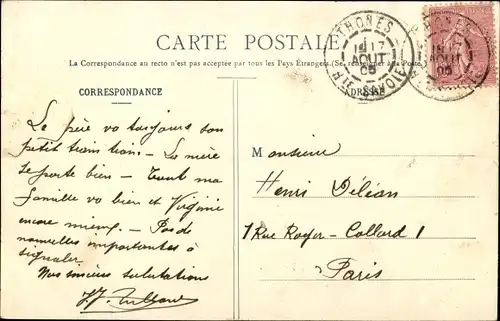 CARTE POSTALE
La Correspondance au recto n'est pas acceptée par tous les Pays Étrangers. (Se renseigner à la Poste.)
THONES
17
AOUT
05
HTE SAVOIE
CORRESPONDANCE
ADRESSE
Le père va toujours son
petit train train - La mère
se porte bien - Toute ma
famille va bien et Virginie
encore mieux. - Pas de
nouvelles importantes à
signaler
Nos sincères salutations
Monsieur
Henri Déléan
1 Rue Royer-Collard 1
Paris